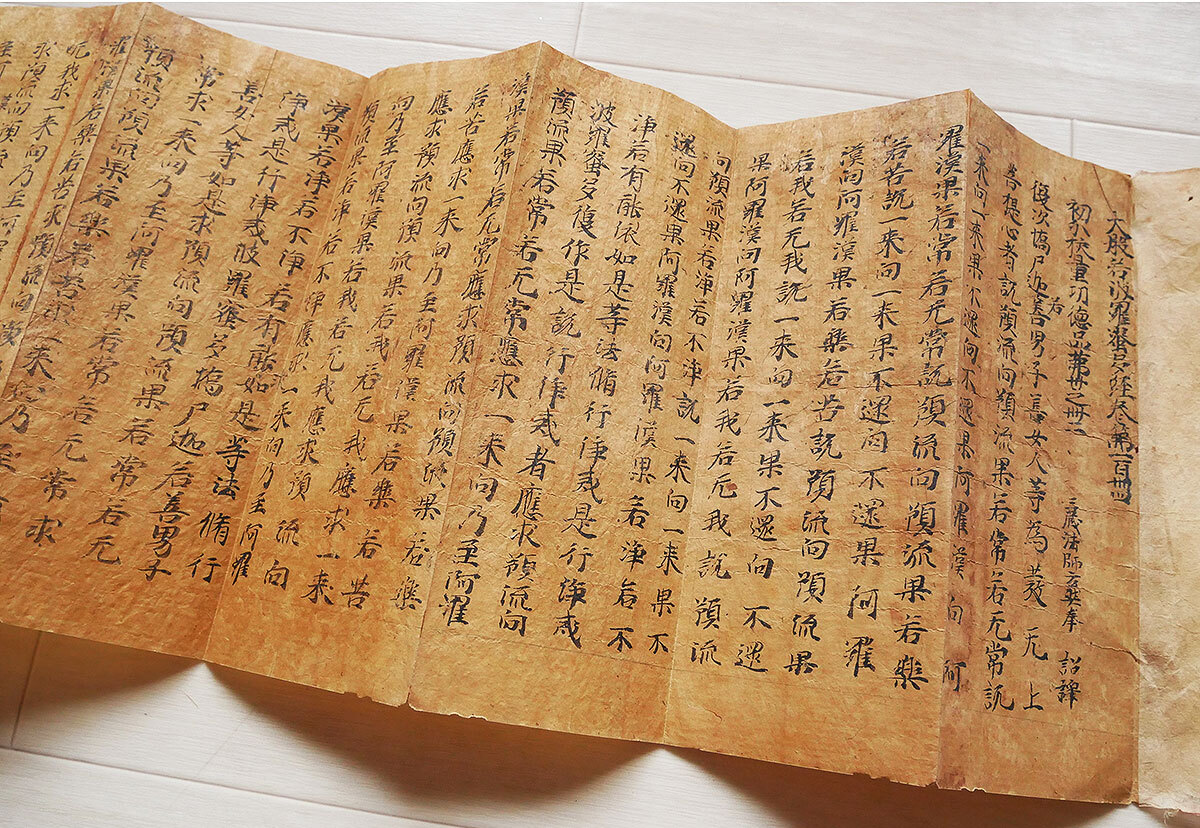 大般若波羅蜜多経巻第一百卌四
初分校量功德品第卅之卌二 三蔵法師玄奘奉 詔譯
復次憍尸迦若善男子善女人等為發无上
菩提心者說預流向預流果若常若无常說
一来向一来果不還向不還果阿羅漢向阿
羅漢果若常若无常說預流向預流果若樂
若苦說一来向一来果不還向不還果阿羅
漢向阿羅漢果若樂若苦說預流向預流果
若我若无我說一来向一来果不還向不還
果阿羅漢向阿羅漢果若我若无我說預流
向預流果若淨若不淨說一来向一来果不
還向不還果阿羅漢向阿羅漢果若淨若不
淨若有能依如是等法脩行淨戒是行淨戒
波羅蜜多復作是說行淨戒者應求預流向
預流果若常若无常應求一来向乃至阿羅
漢果若常若无常應求預流向預流果若樂
若苦應求一来向乃至阿羅漢果若樂若苦
應求預流向預流果若我若无我應求一来
向乃至阿羅漢果若我若无我應求預流向
預流果若淨若不淨應求一来向乃至阿羅
漢果若淨若不淨若有能求如是等法脩行
淨戒是行淨戒波羅蜜多憍尸迦若善男子
善女人等如是求預流向預流果若常若无
常求一来向乃至阿羅漢果若常若无常求
預流向預流果若樂若苦求一来向乃至
羅漢果若樂若苦求預流向
我求一来向乃至阿羅
求預流向預流